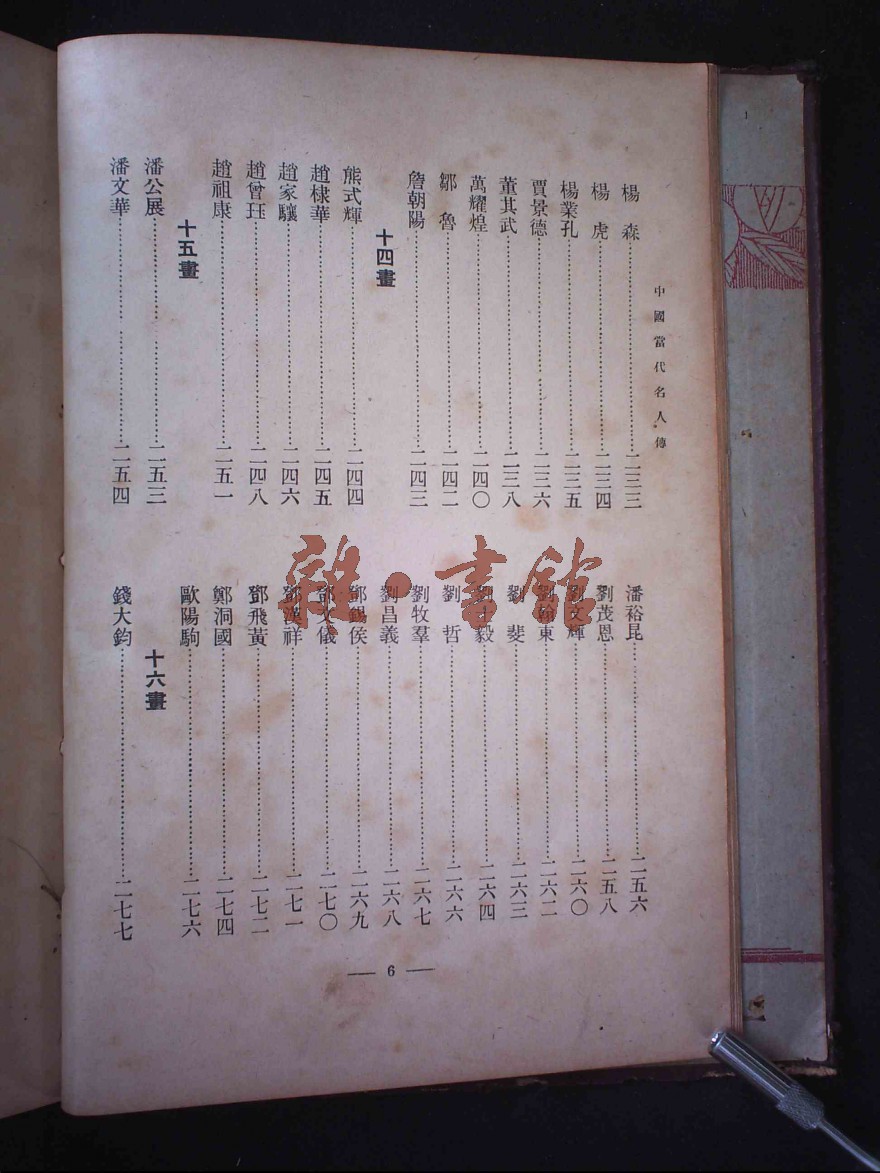 中國當代名人傳
楊森…二三三
楊虎…二三四
楊業孔…二三五
賈景德…二三六
董其武…二三八
萬耀煌…二四〇
鄒魯…二四二
詹朝陽…二四三
十四畫
熊式輝…二四四
趙棣華…二四五
趙家驤…二四六
趙曾珏…二四八
趙祖康…二五一
十五畫
潘公展…二五三
潘文華…二五四
潘裕昆…二五六
劉茂恩…二五八
劉文輝…二六〇
劉翰東…二六二
劉斐…二六三
劉才毅…二六四
劉哲…二六六
劉牧羣…二六七
劉昌義…二六八
鄧錫侯…二六九
鄧文儀…二七〇
鄧漢祥…二七一
鄧飛黃…二七二
鄭洞國…二七四
歐陽駒…二七六
十六畫
錢大鈞…二七七
— 6 —
雜·書館
1